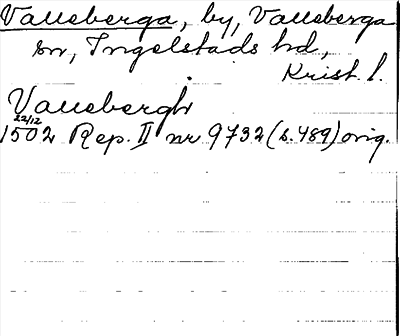 Vallberga, by, Vallberga
sn, Ingelstads hd,
Krist. l.
Vallebergh
22/12
1502 Rep. II nr 9732 (s. 489) orig.